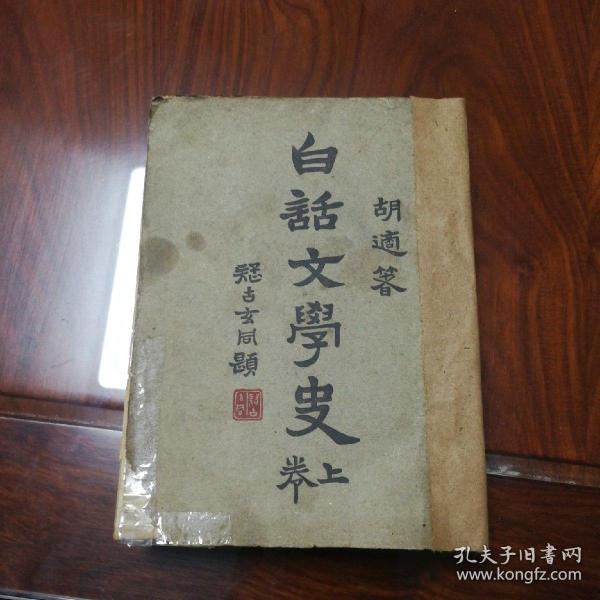 胡適箸
白話文學史
上卷
疑古玄同題
孔夫子旧書网
www.kongfz.com